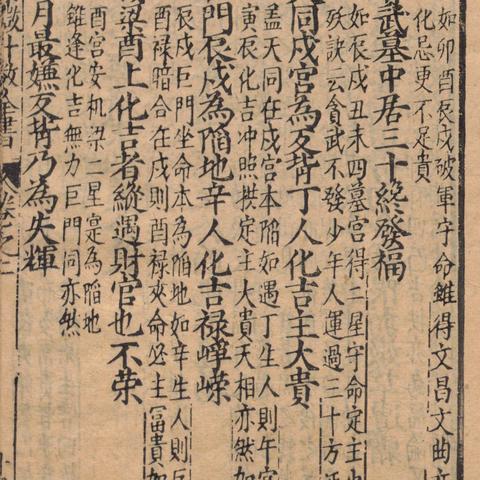 如卯酉辰戌破軍守命雖得文昌文曲
化忌更不足貴
武墓中居三十纔發福
如辰戌丑未四墓宮得二星守命定主
訣云貪武不發少年人運過三十方
同戌宮為反背丁人化吉主大貴
盖天同在戌宮本陷如遇丁生人則午
寅辰化吉冲照拱定主大貴天相亦然
門辰戌為陷地辛人化吉禄崢嶸
辰戌巨門坐命本為陷地如辛生人則
酉禄暗合在戌則酉禄夾命必主富貴如
梁酉上化吉者縱遇財官也不荣
酉宮安机梁二星寔為陷地
雖逢化吉無力巨門同亦然
月最嫌反背乃為失輝
微斗數全書 卷之